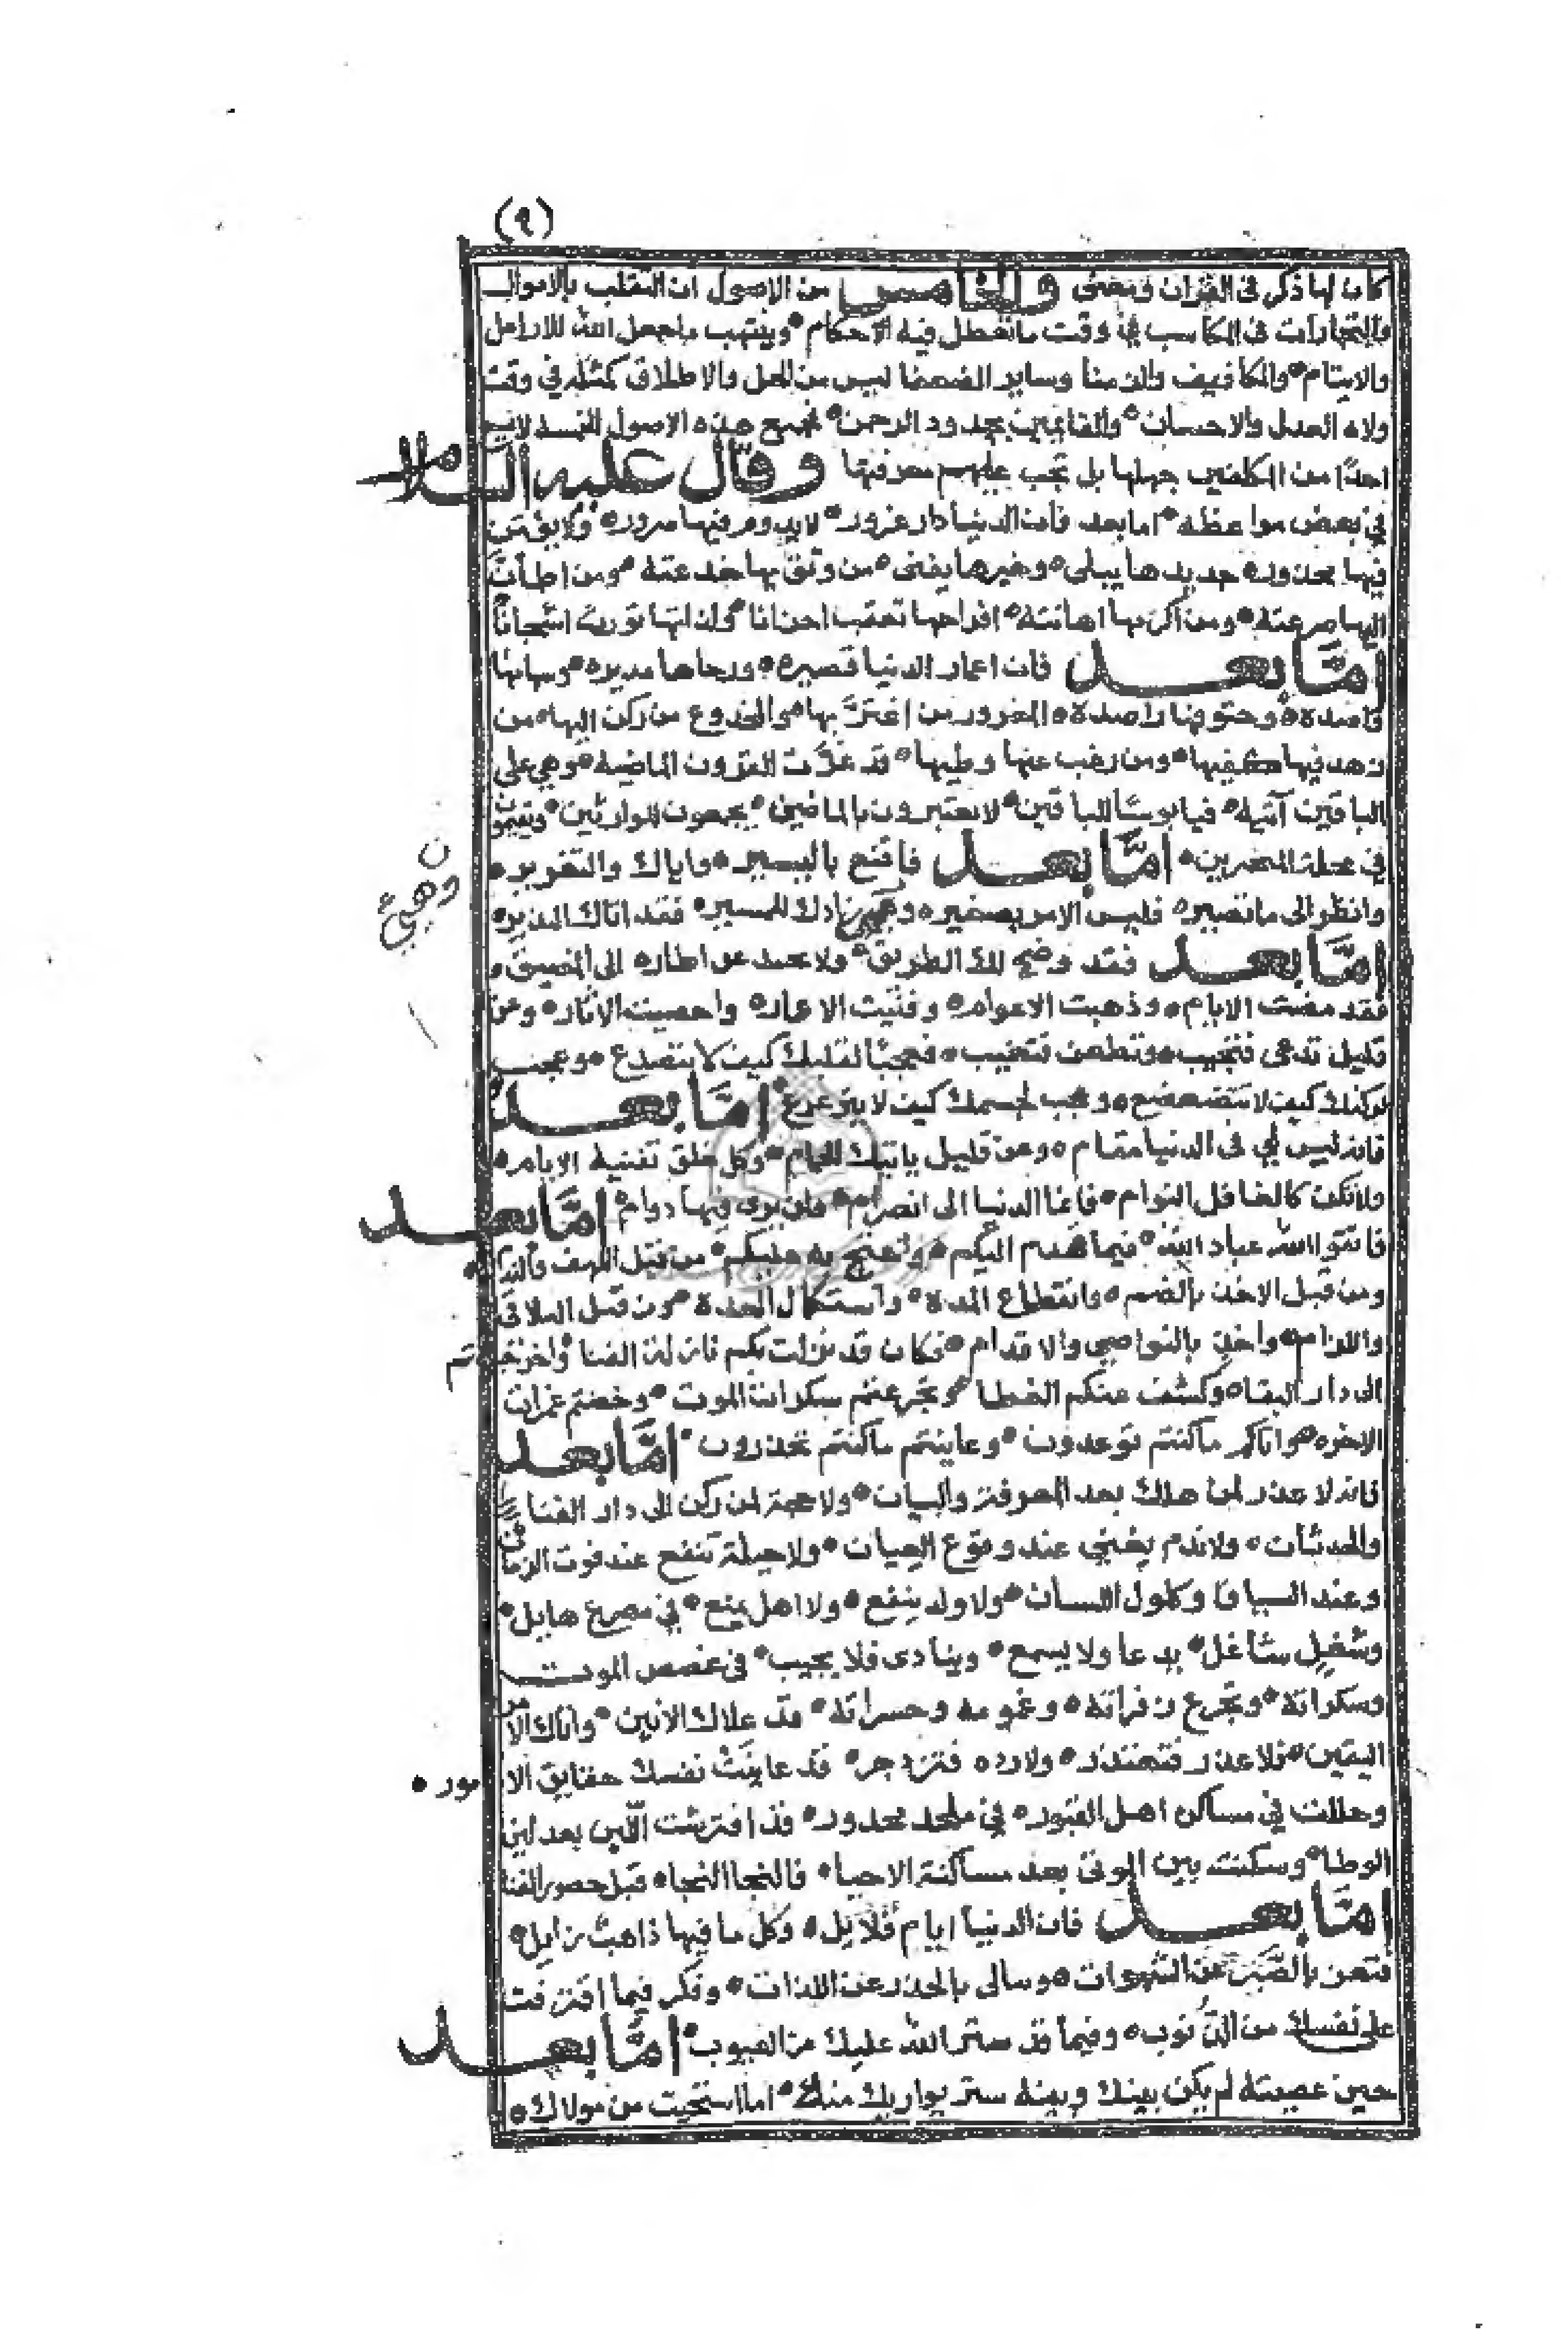 (٩)
كان لها ذكر فى القران ومعنى والخامس من الاصول ان التقلب بالاموال
والتجارات فى المكاسب في وقت ما تعطل فيه الاحكام • وينتهب ما جعل الله للارامل
والايتام • والمكافيف والزمنا وساير الضعفا ليس من الحل والاطلاق كمثله في وقت
ولاه العدل والاحسان • والقايمين بحدود الرحمن • فجميع هذه الاصول الخمسه لا يسع
احدًا من المكلفين جهلها بل تجب عليهم معرفتها وقال عليه السلام
في بعض مواعظه • اما بعد فان الدنيا دار غرور • لا يدوم فيها سرور • ولا يؤمن
فيها محذور • جديدها يبلى • وخيرها يفنى • من وثق بها خدعته • ومن اطمأنَّ
اليها صرعته • ومن اكرمها اهانته • افراحها تعقب احزانا • ولذاتها تورث اشجانًا
امَّا بعد فان اعمار الدنيا قصيره • ورحاها مديره • وسهامها
قاصدة • وحتوفها راصدة • المغرور من اغترَّ بها • والمخدوع من ركن اليها • من
زهد فيها كفيها • ومن رغب عنها وطيها • قد غرَّت القرون الماضية • وهي على
الباقين آتية • فيا بوسًا للباقين • لا يعتبرون بالماضين • يجمعون للوارثين • ويقيمون
في محلة المعتبرين • امَّا بعد فاقنع باليسير • واياك والتغرير •
وانظر الى ما تصير • فليس الامر بصغير • وهيّئ زادك للمسير • فقد اتاك النذير •
امَّا بعد فقد وضح لك الطريق • ولا تحد عن اطاره الى المضيق •
فقد مضت الايام • وذهبت الاعوام • وفنيت الاعمار • واحصيت الاثار • وعن
قليل تدعى فتجيب • وتظعن فتغيب • فعجبًا لقلبك كيف لا يتصدع • وعجب
لركنك كيف لا يتضعضع • وعجب لجسمك كيف لا يتزعزع • امَّا بعد
فانه ليس لحي فى الدنيا مقام • وعن قليل ياتيك الحمام • وكل خلق تفنيه الايام •
ولا تكن كالغافل النوام • فانما الدنيا الى انصرام • ولن يرى فيها دوام • امَّا بعد
فاتقوا الله عباد الله • فيما تقدم اليكم • واحتج به عليكم • من قبل اللهف والندم •
ومن قبل الاخذ بالضم • وانقطاع المدة • واستكمال العدة • ومن قبل التلاقى
واللزام • واخذٍ بالنواصي والاقدام • فكان قد نزلت بكم نازلة الفنا • واخرجتم
الى دار البقا • وكشف عنكم الغطا • وتجرعتم سكرات الموت • وخضتم غمرات
الاخره • واتاكم ما كنتم توعدون • وعاينتم ما كنتم تحذرون • امَّا بعد
فانه لا عذر لمن هلك بعد المعرفة والبيان • ولا حجة لمن ركن الى دار الفنا
والحدثان • ولا ندم يغني عند وقوع العيان • ولا حيلة تنفع عند فوت الزمان
وعند السياق وكلول اللسان • ولا ولد ينفع • ولا اهل يمنع • في مصرع هايل •
وشغل شاغل • يدعا ولا يسمع • وينادى فلا يجيب • فى غصص الموت
وسكراته • وتجرع زفراته • وغمومه وحسراته • قد علاك الانين • واتاك الامر
اليقين • فلا عذر فتعتذر • ولا رده فتزدجر • قد عاينت نفسك حقايق الامور •
وحللت في مساكن اهل القبور • في ملحد محدور • قد افترشت اللّبن بعد لين
الوطا • وسكنت بين الموتى بعد مساكنة الاحيا • فالنجا النجا • قبل حصور الفنا
امَّا بعد فان الدنيا ايام قلايل • وكل ما فيها ذاهب زايل •
فتعن بالصَّبر عن الشهوات • وسالى بالحذر عن اللذات • وفكر فيما اقترفت
على نفسك من الذنوب • وفيما قد ستر الله عليك من العيوب • امَّا بعد
حين عصيته لم يكن بينك وبينه ستر يواريك منه • اما استحيت من مولاك •
ن
وهيّئ